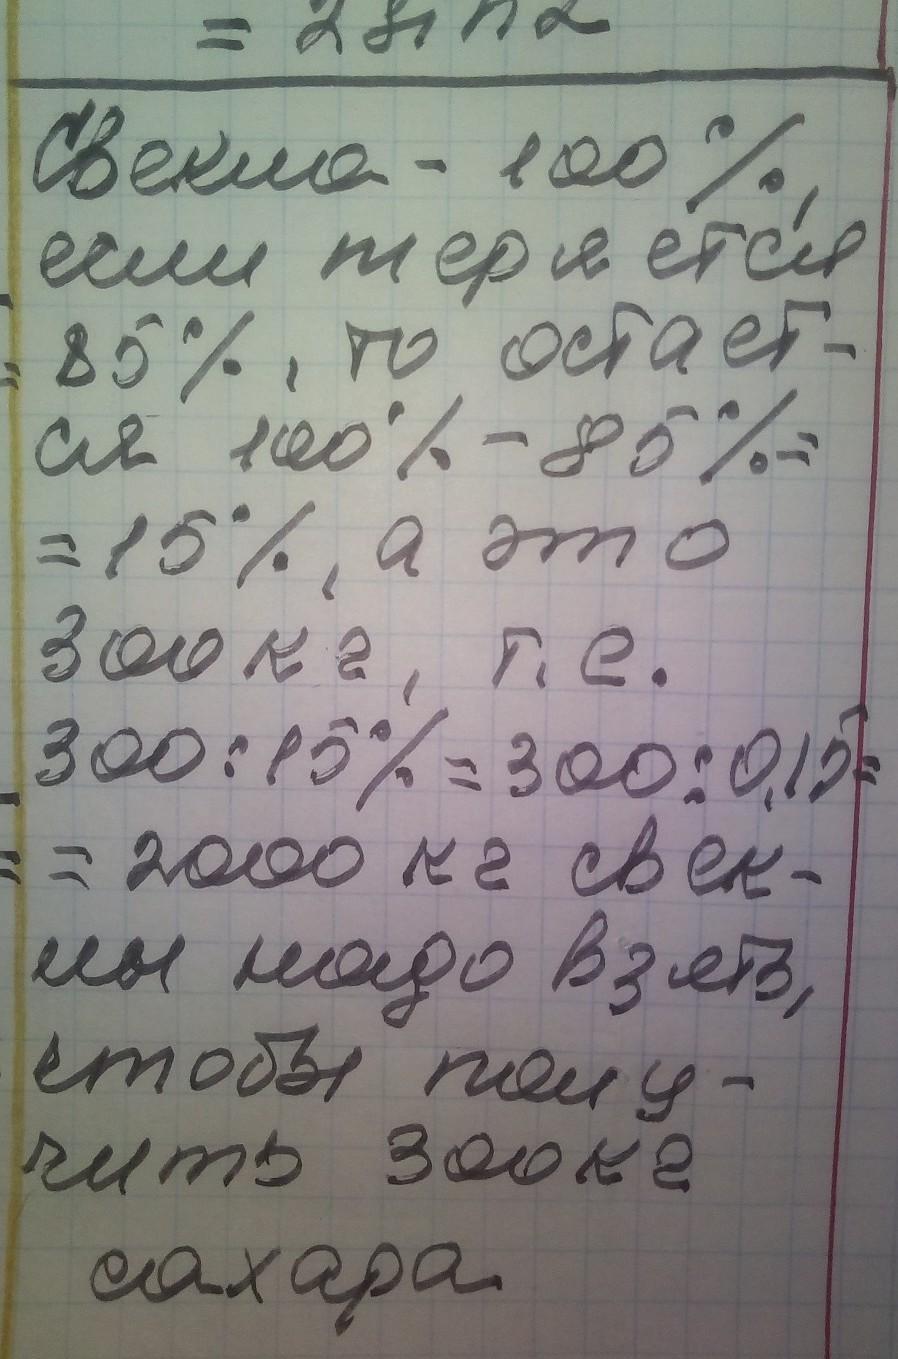 = 2 sin 2
Свекла - 100%,
если теряется
85%, то остает-
ся 100% - 85% =
= 15%, а это
300 кг, т.е.
300 : 15% = 300 : 0,15 =
= 2000 кг свек-
лы надо взять,
чтобы полу-
чить 300 кг
сахара